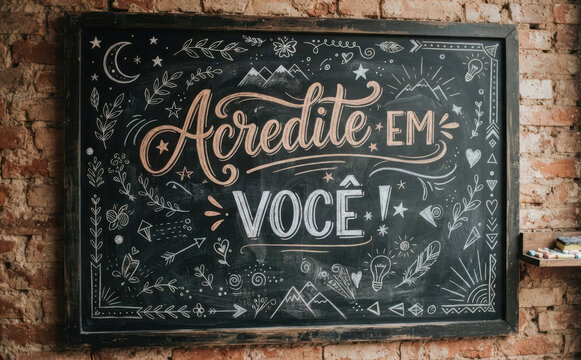 Acredite EM
VOCÊ!